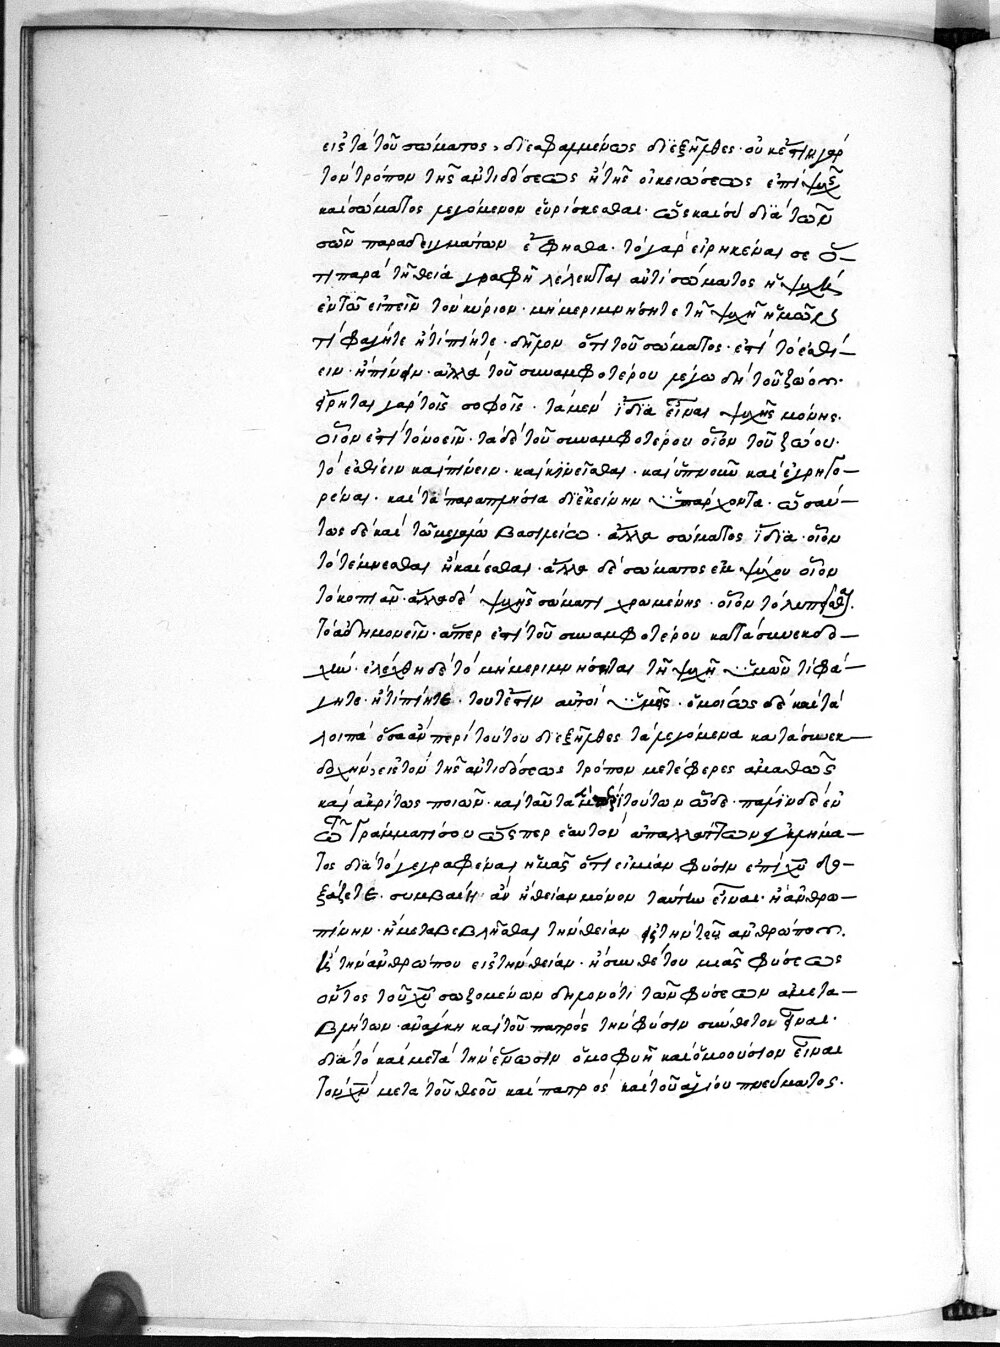 εἰς τὰ τοῦ σώματος, διεφαμμένως διεξῆλθες· οὐκ ἔστιν γὰρ
τὸν τρόπον τῆς ἀντιδόσεως ἢ τῆς οἰκειώσεως ἐπὶ ψυχῆς
καὶ σώματος λεγόμενον εὑρίσκεσθαι· ὡς καὶ σὺ διὰ τῶν
σῶν παραδειγμάτων ἐφήσθα· τὸ γὰρ εἰρηκέναι σε ὅ-
τι παρὰ τῇ θείᾳ γραφῇ λέλεκται ἀντὶ σώματος ἡ ψυχὴ
ἐν τῷ εἰπεῖν τὸν κύριον· μὴ μεριμνήσητε τῇ ψυχῇ ἡμῶν
τί φάγητε ἢ τί πίητε· δῆλον ὅτι τοῦ σώματος· ἐπὶ τὸ ἐσθί-
ειν· ἢ πίνειν· ἀλλὰ τοῦ συναμφοτέρου λέγω δὴ τοῦ ζώου·
εἴρηται γὰρ τοῖς σοφοῖς· τὰ μὲν ἴδια εἶναι ψυχῆς μόνης·
οἷον ἐπὶ τὸ νοεῖν· τὰ δὲ τοῦ συναμφοτέρου οἷον τοῦ ζώου·
τὸ ἐσθίειν καὶ πίνειν· καὶ κινεῖσθαι· καὶ ὑπνοῦν καὶ ἐγρηγο-
ρέναι· καὶ τὰ παραπλήσια δι' ἐκείνην ὑπάρχοντα· ὡσαύ-
τως δὲ καὶ τῷ μεγάλῳ βασιλείῳ· ἄλλα σώματος ἴδια· οἷον
τὸ τέμνεσθαι ἢ καίεσθαι· ἄλλα δὲ σώματος ἐμψύχου οἷον
τὸ κοπιᾶν· ἄλλα δὲ ψυχῆς σώματι χρωμένης· οἷον τὸ λυπεῖσθαι.
τὸ ἀδημονεῖν· ἅπερ ἐπὶ τοῦ συναμφοτέρου κατὰ συνεκδο-
χὴν· ἐλέχθη δὲ τὸ μὴ μεριμνήσηται τῇ ψυχῇ ὑμῶν τί φά-
γητε· ἢ τί πίητε· τουτέστιν αὐτοὶ ὑμεῖς· ὁμοίως δὲ καὶ τὰ
λοιπὰ ὅσα ἂν περὶ τούτου διεξῆλθες τὰ λεγόμενα κατὰ συνεκ-
δοχὴν, εἰς τὸν τῆς ἀντιδόσεως τρόπον μετέφερες ἀμαθῶς
καὶ ἀκρίτως ποιῶν· καὶ ταῦτα τούτων ὧδε· πάλιν δὲ ἐν
ᾧ γραμματίσου ὥσπερ ἑαυτὸν ἀπαλλάττων ἐγκλήμα-
τος διὰ τὸ γεγραφέναι ἡμᾶς ὅτι εἰ μίαν φύσιν ἐπὶ χῦ δο-
ξάζετε· συμβαίη ἂν ἢ θείαν μόνον ταύτην εἶναι· ἢ ἀνθρω-
πίνην· ἢ μεταβεβλῆσθαι τὴν θείαν εἰς τὴν τοῦ ἀνθρώπου.
ἢ τὴν ἀνθρώπου εἰς τὴν θείαν· ἢ συνθέτου μιᾶς φύσεως
ὄντος τοῦ χῦ σωζομένων δηλονότι τῶν φύσεων ἀμετα-
βλήτων· ἀνάγκη καὶ τοῦ πατρὸς τὴν φύσιν σύνθετον εἶναι·
διὰ τὸ καὶ μετὰ τὴν ἕνωσιν ὁμοφυῆ καὶ ὁμοούσιον εἶναι
τὸν χν μετὰ τοῦ θεοῦ καὶ πατρὸς καὶ τοῦ ἁγίου πνεύματος.